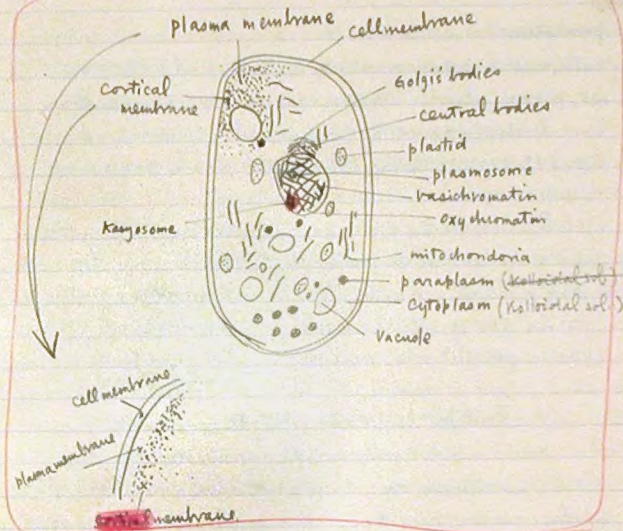 plasma membrane
cell membrane
Cortical
membrane
Golgis bodies
central bodies
plastid
plasmosome
vasichromatin
oxychromatin
Karyosome
mitochondoria
paraplasm (Kolloidal sol)
Cytoplasm (Kolloidal sol.)
Vacuole
cell membrane
plasma membrane
membrane